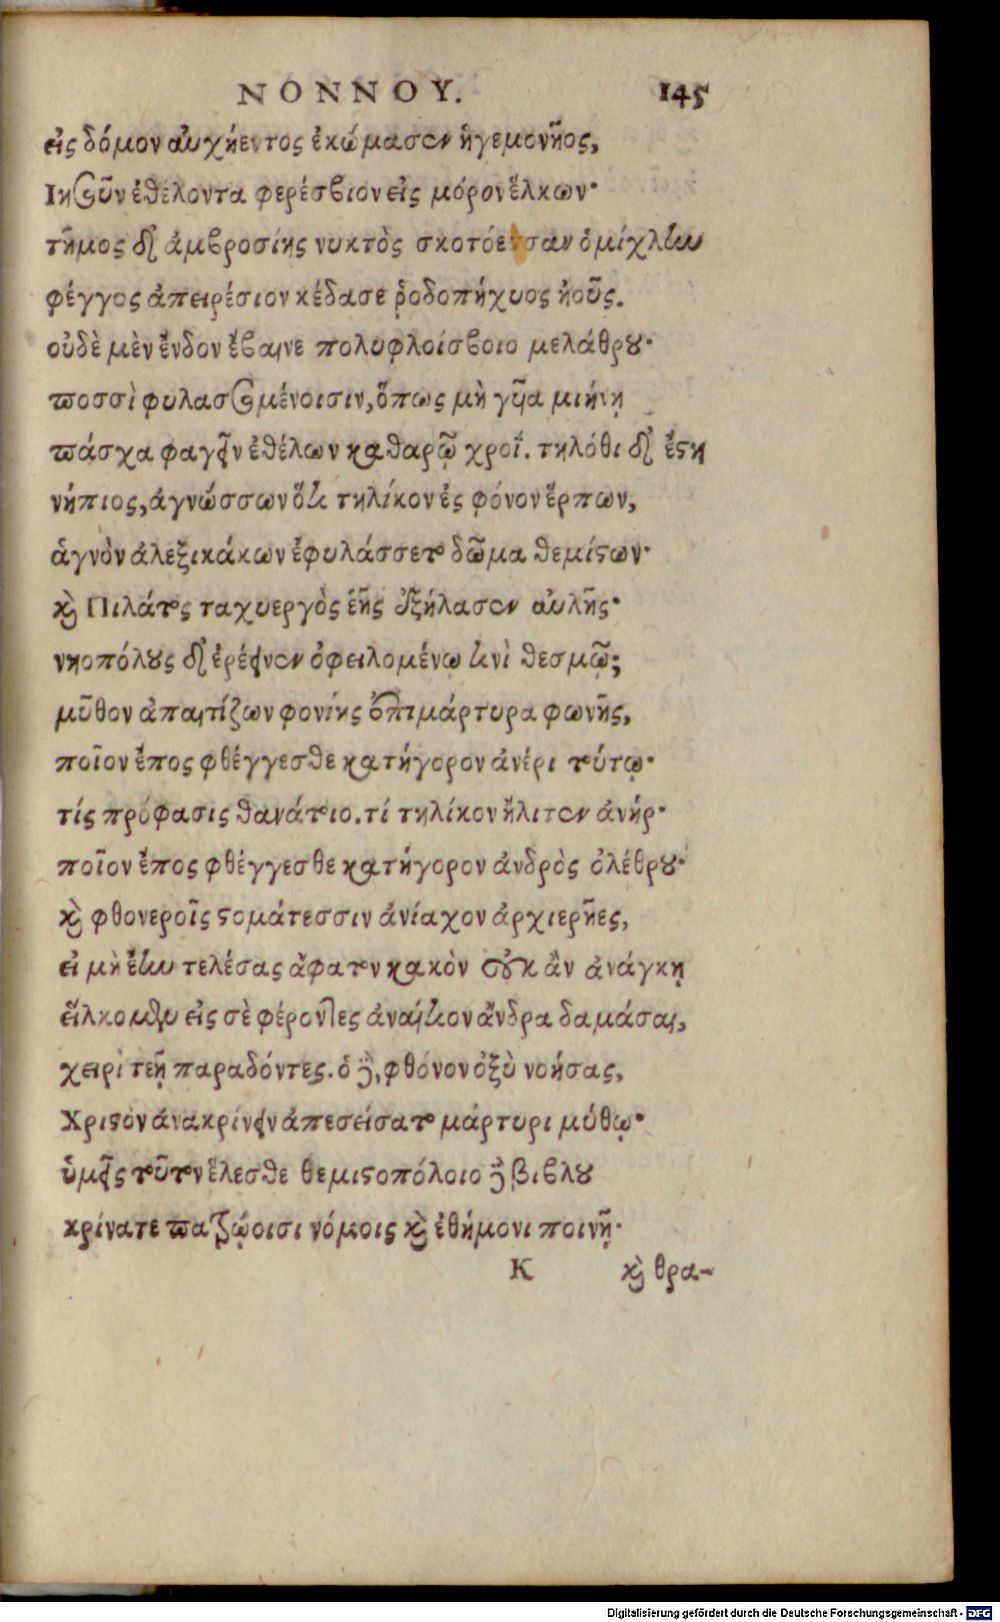 ΝΟΝΝΟΥ. 145
εἰς δόμον αὐχήεντος ἐκώμασον ἡγεμονῆος,
Ιησοῦν ἐθέλοντα φερέσβιον εἰς μόρον ἕλκων·
τῆμος δ' ἀμβροσίης νυκτὸς σκοτόεσσαν ὁμίχλην
φέγγος ἀπειρέσιον κέδασε ῥοδοπήχυος ἠοῦς.
οὐδὲ μὲν ἔνδον ἔβαινε πολυφλοίσβοιο μελάθρου·
ποσσὶ φυλασσομένοισιν, ὅπως μὴ γυῖα μιήνῃ
πάσχα φαγεῖν ἐθέλων καθαρῷ χροΐ. τηλόθι δ' ἔστη
νήπιος, ἀγνώσσων ὅτι τηλίκον ἐς φόνον ἕρπων,
ἁγνὸν ἀλεξικάκων ἐφυλάσσετο δῶμα θεμίστων·
καὶ Πιλάτος ταχυεργὸς ἑῆς ἐξήλασον αὐλῆς·
νηοπόλους δ' ἐρέεινον ὀφειλομένῳ τινὶ θεσμῷ;
μῦθον ἀπαιτίζων φονίης ἐπιμάρτυρα φωνῆς,
ποῖον ἔπος φθέγγεσθε κατήγορον ἀνέρι τούτῳ·
τίς πρόφασις θανάτοιο. τί τηλίκον ἤλιτον ἀνήρ·
ποῖον ἔπος φθέγγεσθε κατήγορον ἀνδρὸς ὀλέθρου·
καὶ φθονεροῖς στομάτεσσιν ἀνίαχον ἀρχιερῆες,
εἰ μὴ ἔην τελέσας ἄφατον κακὸν οὐκ ἂν ἀνάγκῃ
εἵλκομεν εἰς σὲ φέροντες ἀναίτιον ἄνδρα δαμάσαι,
χειρὶ τεῇ παραδόντες. ὁ δὲ, φθόνον ὀξὺ νοήσας,
Χριστὸν ἀνακρίνειν ἀπεσείσατο μάρτυρι μύθῳ·
ὑμεῖς τοῦτον ἕλεσθε θεμιστοπόλοιο δὲ βιβλου
κρίνατε πατρῴοισι νόμοις καὶ ἐθήμονι ποινῇ·
Κ καὶ θρα-
Digitalisierung gefördert durch die Deutsche Forschungsgemeinschaft - DFG